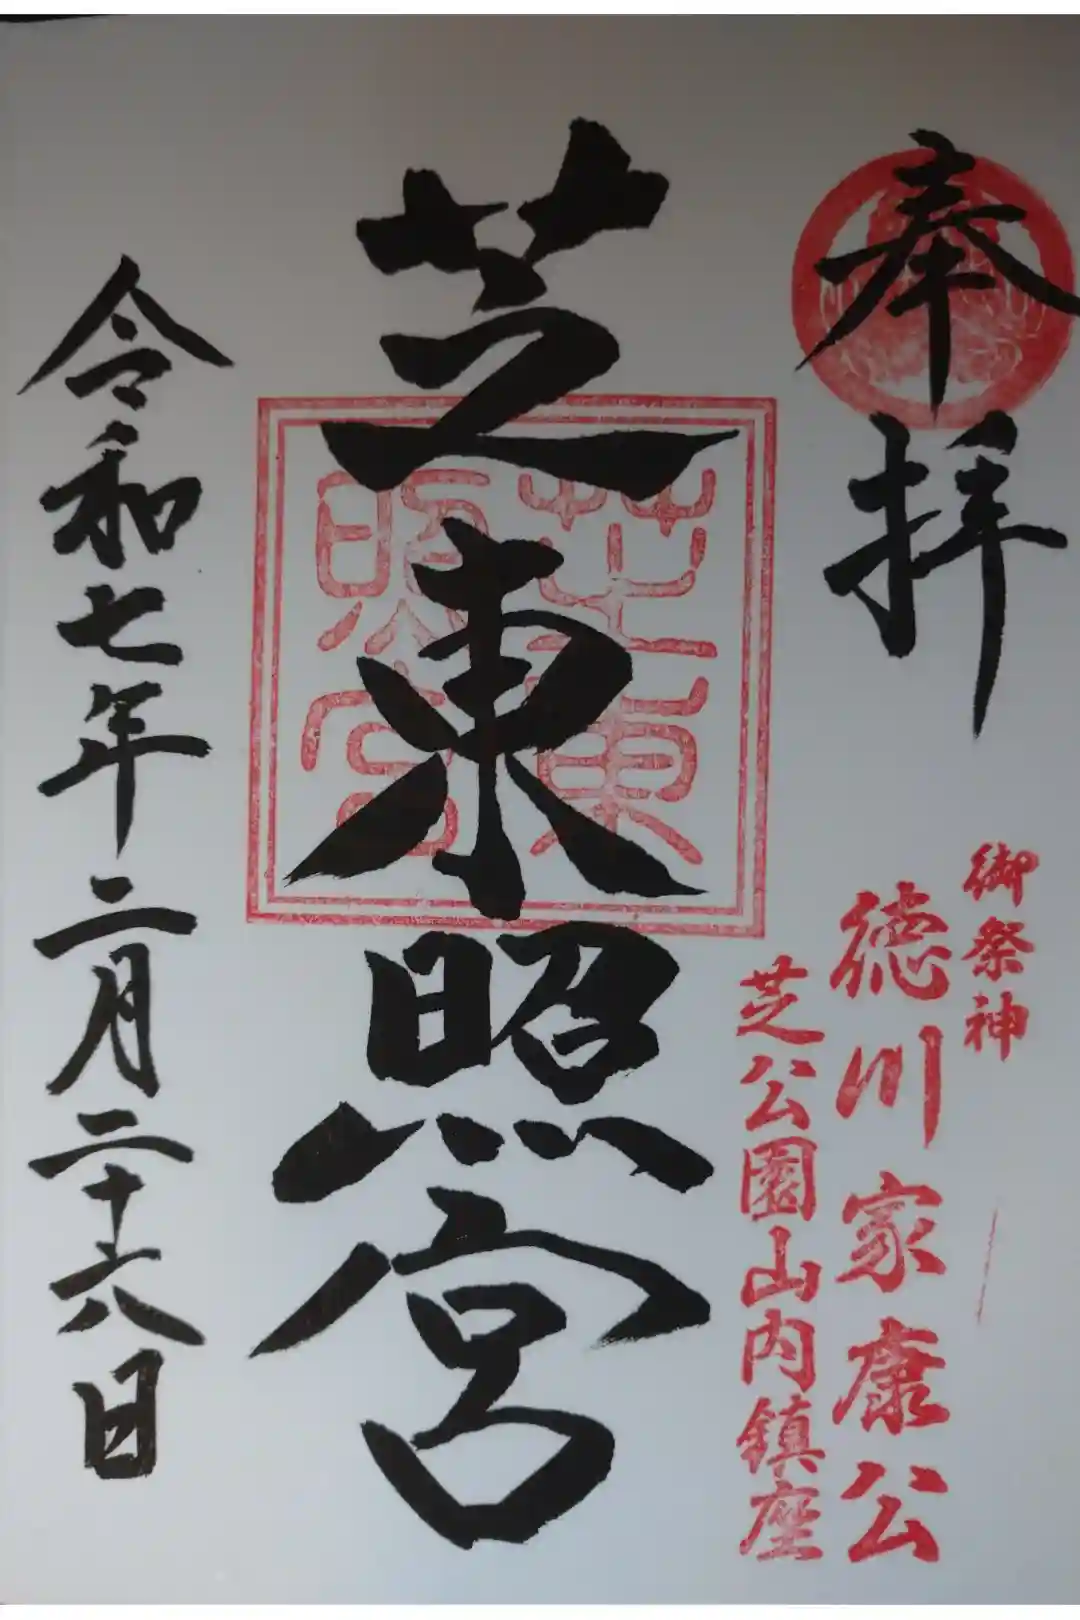 奉拝
御祭神
徳川家康公
芝公園山内鎮座
芝東照宮
芝東
照宮
令和七年二月二十六日